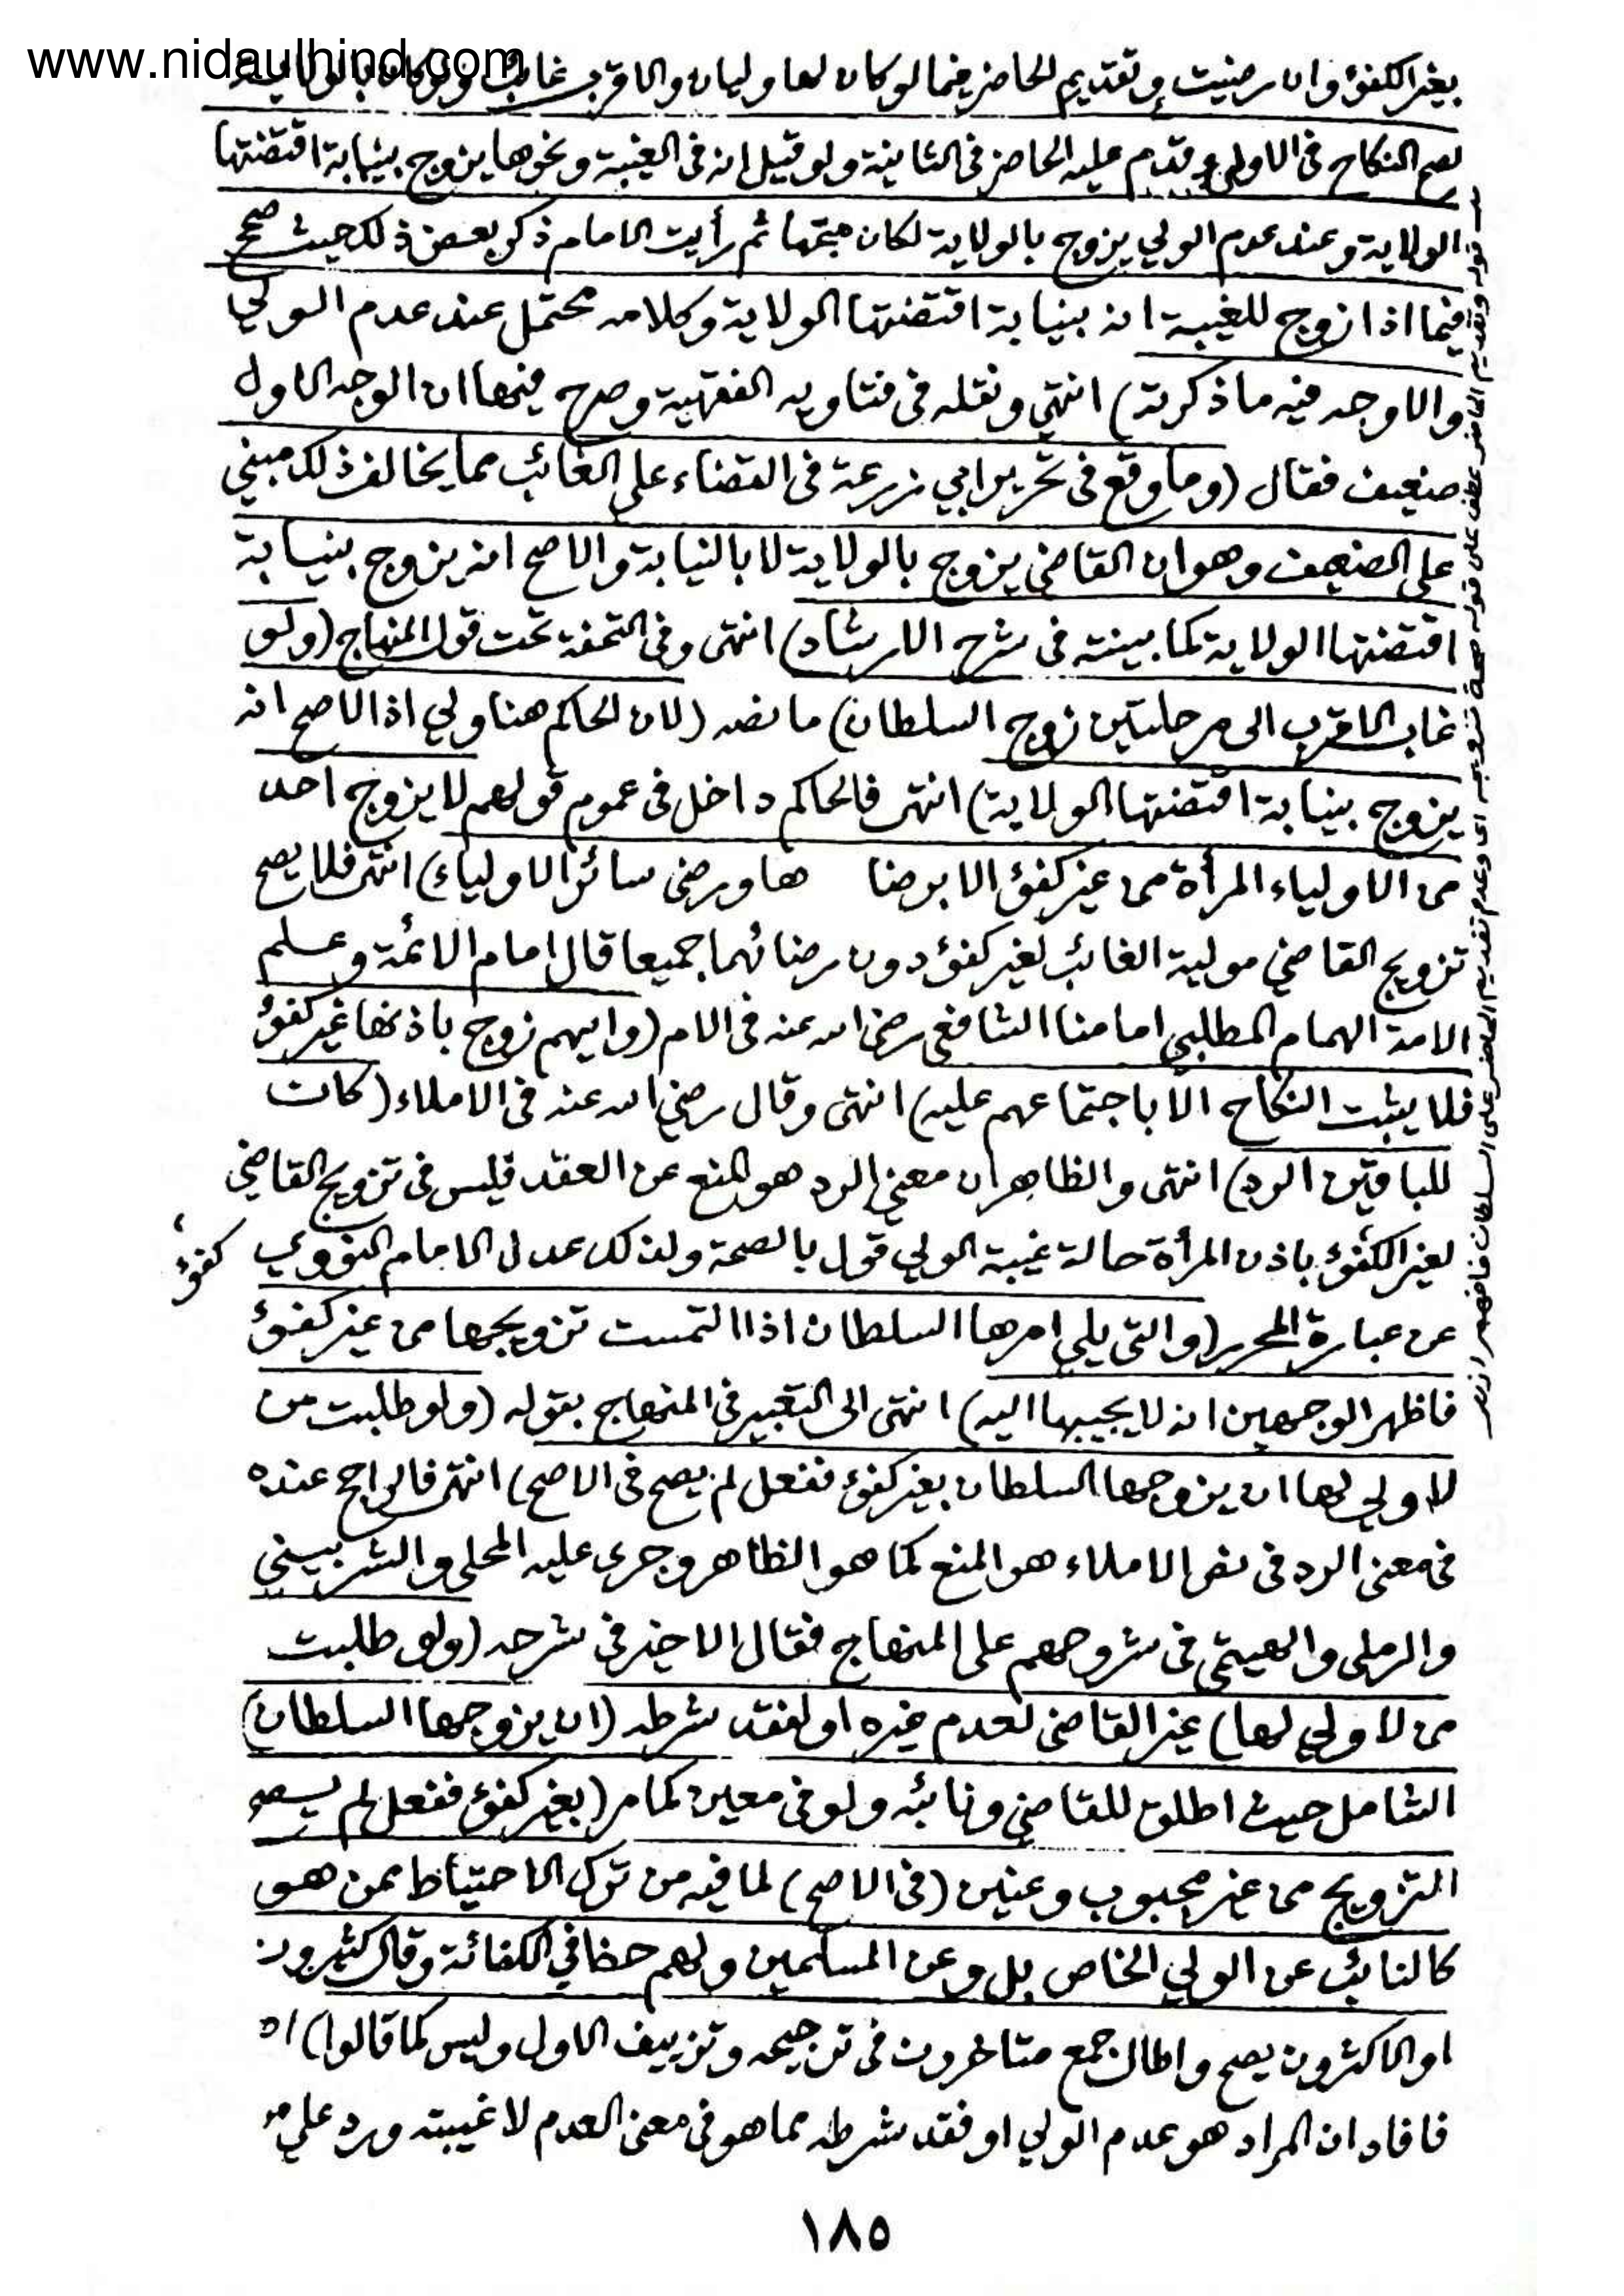 www.nidaulhind.com
بغير الكفؤ وان رضيت وتقديم الحاضر فيما لو كان لها وليان والاقرب غائب ولو كان بالولاية
لصح النكاح فى الاولى وقدم عليه الحاضر فى الثانية ولو قيل انه فى الغيبة ونحوها يزوج بنيابة اقتضتها
الولاية وعند عدم الولي يزوج بالولاية لكان متجها ثم رأيت الامام ذكر بعض ذلك حيث صحح
فيما اذا زوج للغيبة انه بنيابة اقتضتها الولاية وكلامه محتمل عند عدم الولي
والاوجه فيه ما ذكرته) انتهى ونقله فى فتاويه الفقهية وصرح فيها ان الوجه الاول
ضعيف فقال (وما وقع فى تحرير ابي زرعة فى القضاء على الغائب مما يخالف ذلك مبني
على الضعيف وهو ان القاضي يزوج بالولاية لا بالنيابة والاصح انه يزوج بنيابة
اقتضتها الولاية كما بينته فى شرح الارشاد) انتهى وفى التحفة تحت قول المنهاج (ولو
غاب الاقرب الى مرحلتين زوج السلطان) ما نصه (لان الحاكم هنا ولي اذ الاصح انه
يزوج بنيابة اقتضتها الولاية) انتهى فالحاكم داخل فى عموم قولهم لا يزوج احد
من الاولياء المرأة من غير كفؤ الا برضا ها ورضى سائر الاولياء) انتهى فلا يصح
تزويج القاضي مولية الغائب لغير كفؤ دون رضائهما جميعا قال امام الائمة وعلم
الامة الهمام المطلبي امامنا الشافعي رضي الله عنه فى الام (وايهم زوج باذنها غير كفؤ
فلا يثبت النكاح الا باجتماعهم عليه) انتهى وقال رضي الله عنه فى الاملاء (كان
للباقين الرد) انتهى والظاهر ان معنى الرد هو المنع عن العقد فليس فى تزويج القاضي
لغير الكفؤ باذن المرأة حالة غيبة الولي قول بالصحة ولذلك عدل الامام النووي
كفؤ
عن عبارة المحرر (والتى يلي امرها السلطان اذا التمست تزويجها من غير كفؤ
فاظهر الوجهين انه لا يجيبها اليه) انتهى الى التعبير فى المنهاج بقوله (ولو طلبت من
لا ولي لها ان يزوجها السلطان بغير كفؤ ففعل لم يصح فى الاصح) انتهى فالراجح عنده
فى معنى الرد فى نص الاملاء هو المنع كما هو الظاهر وجرى عليه المحلي والشربيني
والرملى والهيتمى فى شروحهم على المنهاج فقال الاخير فى شرحه (ولو طلبت
من لا ولي لها) غير القاضى لعدم غيره او لفقد شرطه (ان يزوجها السلطان)
الشامل حيث اطلق للقاضي ونائبه ولو فى معين كما مر (بغير كفؤ ففعل لم يصح
التزويج من غير مجبوب وعنين (فى الاصح) لما فيه من ترك الاحتياط ممن هو
كالنائب عن الولي الخاص بل وعن المسلمين ولهم حظ في الكفائة وقال كثيرون
او الاكثرون يصح واطال جمع متاخرون فى ترجيحه وتزييف الاول وليس كما قالوا) اه
فافاد ان المراد هو عدم الولي او فقد شرطه مما هو فى معنى العدم لا غيبته ورد على
قوله وتقديم الحاضر عطف على قوله صحة تزويجه اى وعدم تقديم الحاضر على السلطان فافهم
١٨٥